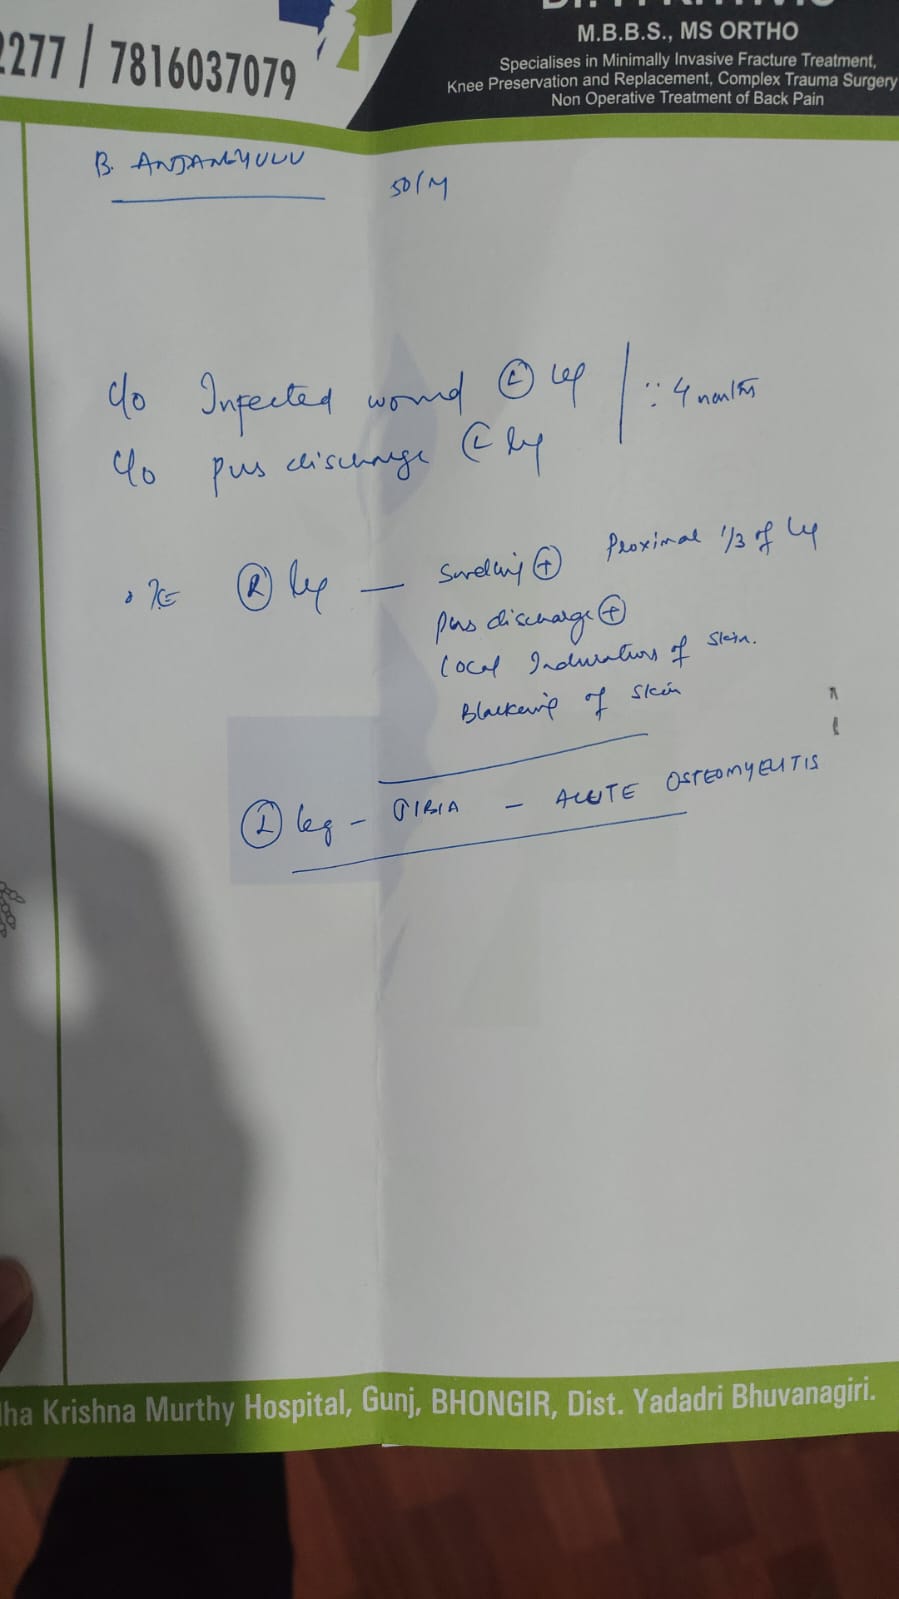 2277 / 7816037079
M.B.B.S., MS ORTHO
Specialises in Minimally Invasive Fracture Treatment,
Knee Preservation and Replacement, Complex Trauma Surgery
Non Operative Treatment of Back Pain
B. ANJANEYULU
50/M
c/o Infected wound Ⓛ leg
∵ 4 months
c/o pus discharge Ⓛ leg
Ⓡ leg — Swelling ⊕ Proximal 1/3 of leg
pus discharge ⊕
Local Induration of skin.
Blackening of skin
Ⓛ leg - TIBIA - ACUTE OSTEOMYELITIS
Krishna Murthy Hospital, Gunj, BHONGIR, Dist. Yadadri Bhuvanagiri.